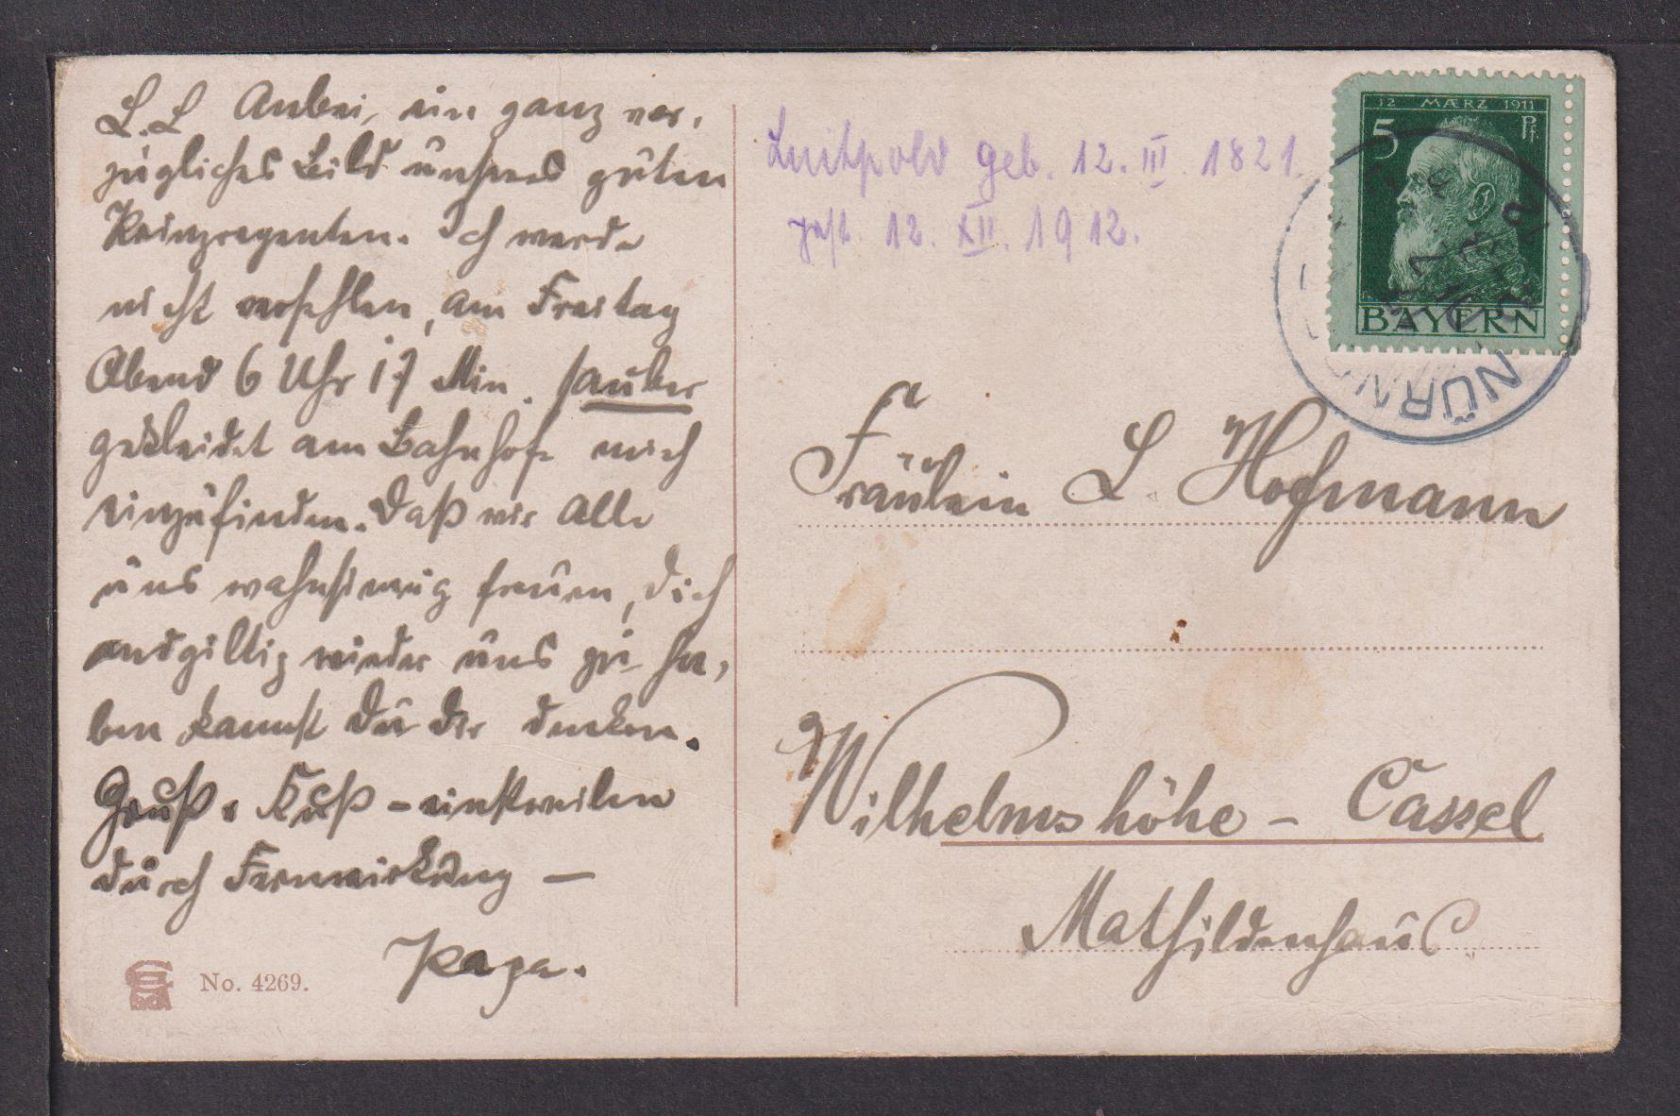 L. L. Anbei, ein ganz vor,
zügliches Bild unseres guten
Prinzregenten. Ich werde
nicht verfehlen, am Freitag
Abend 6 Uhr 17 Min. sauber
gekleidet am Bahnhofe mich
einzufinden. Daß wir Alle
uns wahnsinnig freuen, Dich
endgiltig wieder uns zu ha,
ben kannst Du Dir denken.
Gruß u Kuß – einstweilen
durch Fernwirkung –
Papa.
No. 4269.
Luitpold geb. 12. III. 1821.
gest. 12. XII. 1912.
12 MÆRZ 1911
5 Pf.
BAYERN
NÜRN
Fräulein L. Hofmann
Wilhelmshöhe – Cassel
Mathildenhaus